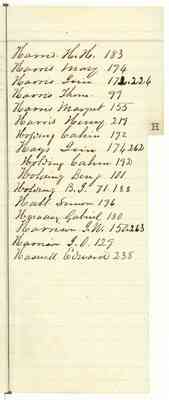 Harris H. H. 183
Harris Mary 174
Harris Irvin 172.224
Harris Thom 97
Harris Margret 155
Harris Henry 219
H
Hofsing Calvin 192
Hays Irvin 174 262
Holsing Calvin 192
Holsing Benj 101
Holsing B. F. 71.188
Hall Simon 176
Gabriel 130
Harman J. W. 150.263
Harman J. O. 129
Haswell Edward 238